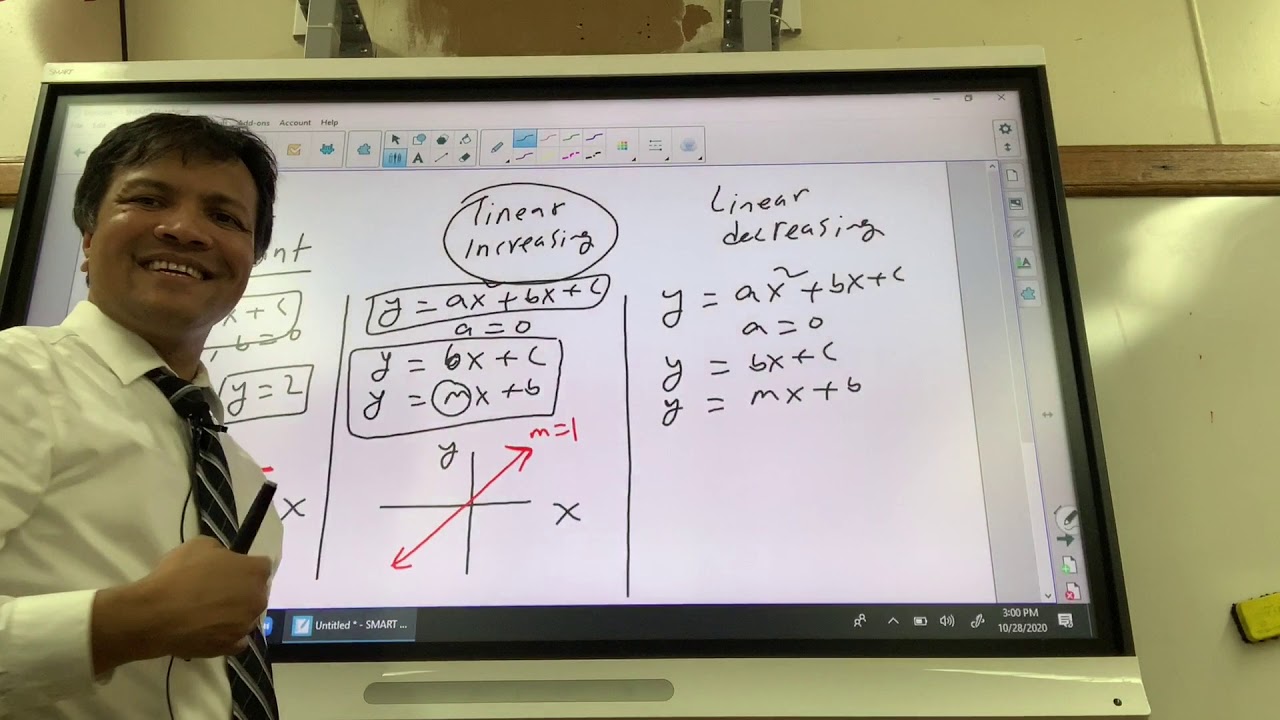 SMART
Add-ons Account Help
x + c
b = 0
y = 2
x
Linear
Increasing
y = ax + bx + c
a = 0
y = bx + c
y = mx + b
m=1
y
x
Linear
decreasing
y = ax² + bx + c
a = 0
y = bx + c
y = mx + b
A
A
Untitled * - SMART ...
3:00 PM
10/28/2020